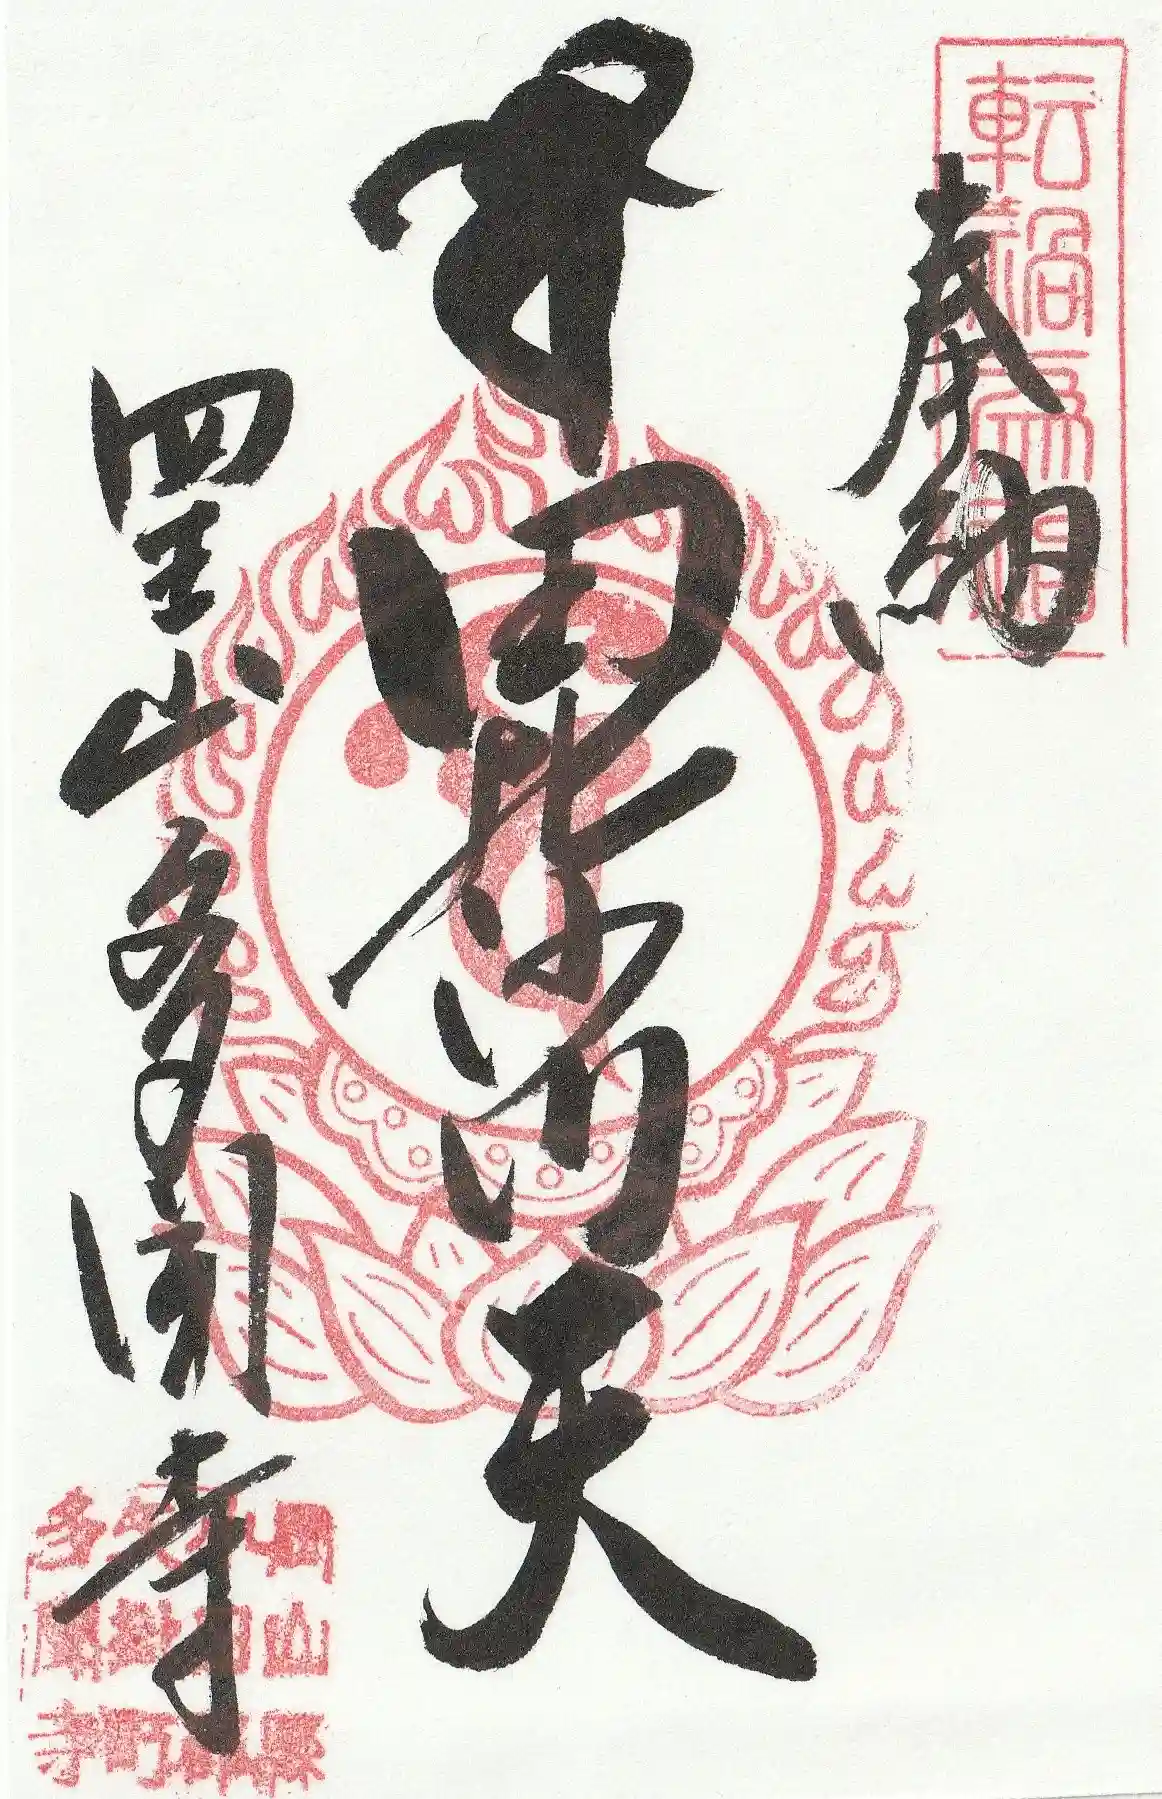 転禍為福
奉納
毘沙門天
四王山多聞寺